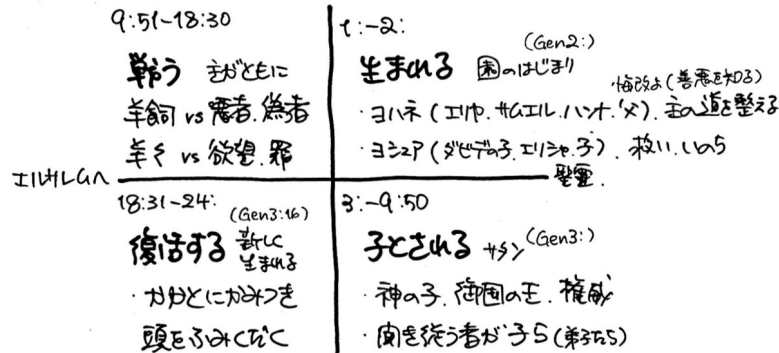 9:51-18:30
戦う 主がともに
羊飼 vs 悪者、偽者
羊々 vs 欲望、罪
1:-2:
(Gen2:)
生まれる 園のはじまり
悔改よ(善悪を知る)
・ヨハネ(エリヤ、サムエル、ハンナ、父)、主の道を整える
・ヨシュア(ダビデの子、エリシャ、子)、救い、いのち
聖霊、
エルサレムへ
18:31-24:
(Gen3:16)
復活する 新しく
生まれる
・かかとにかみつき
頭をふみくだく
3:-9:50
子とされる サタン (Gen3:)
・神の子、御国の王、権威
・聞き従う者が子ら(弟子たち)